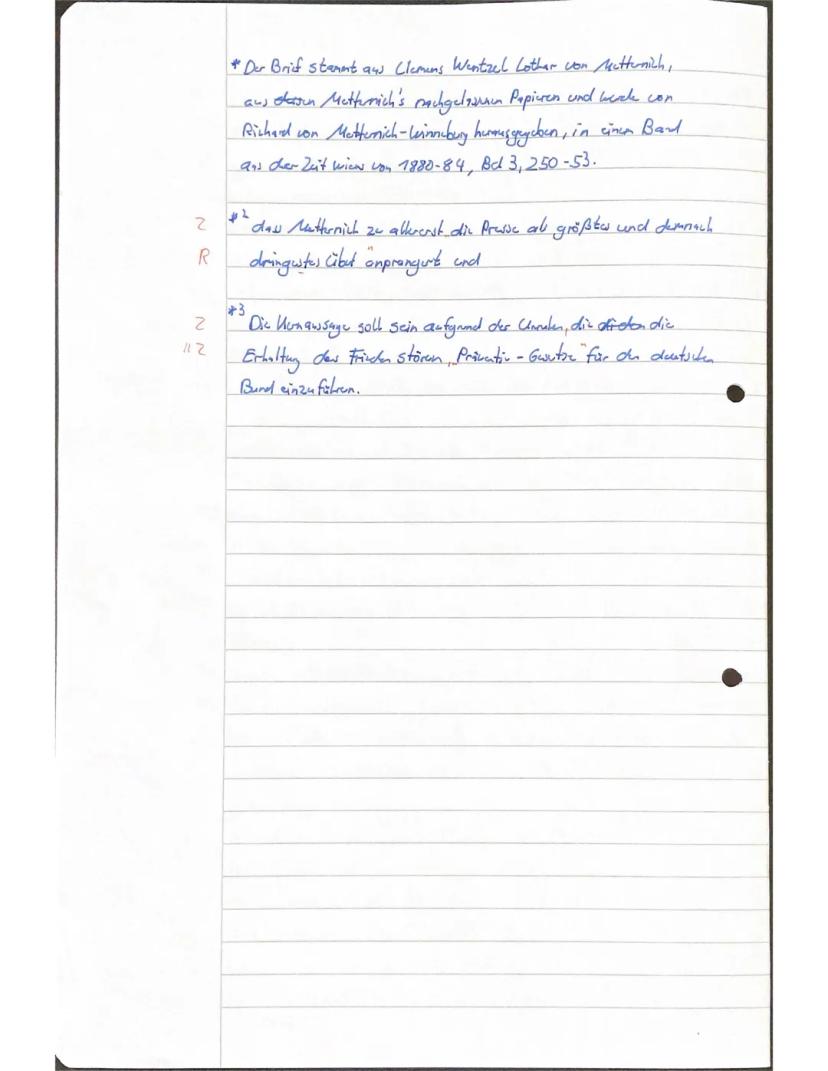 * Der Brief stammt aus Clemens Wentzel Lothar von Metternich,
aus dessen Metternich's nachgelassenen Papieren und wurde von
Richard von Metternich-Winneburg herausgegeben, in einem Band
aus der Zeit Wiens von 1880-84, Bd 3, 250-53.
Z *2 dass Metternich zu allererst die Presse als größtes und demnach
R dringustes Übel anprangert und
Z *3 Die Kernaussage soll sein aufgrund der Unruhen, die die
"Z Erhaltung des Frieden stören, „Präventiv-Gesetze" für den deutschen
Bund einzuführen.